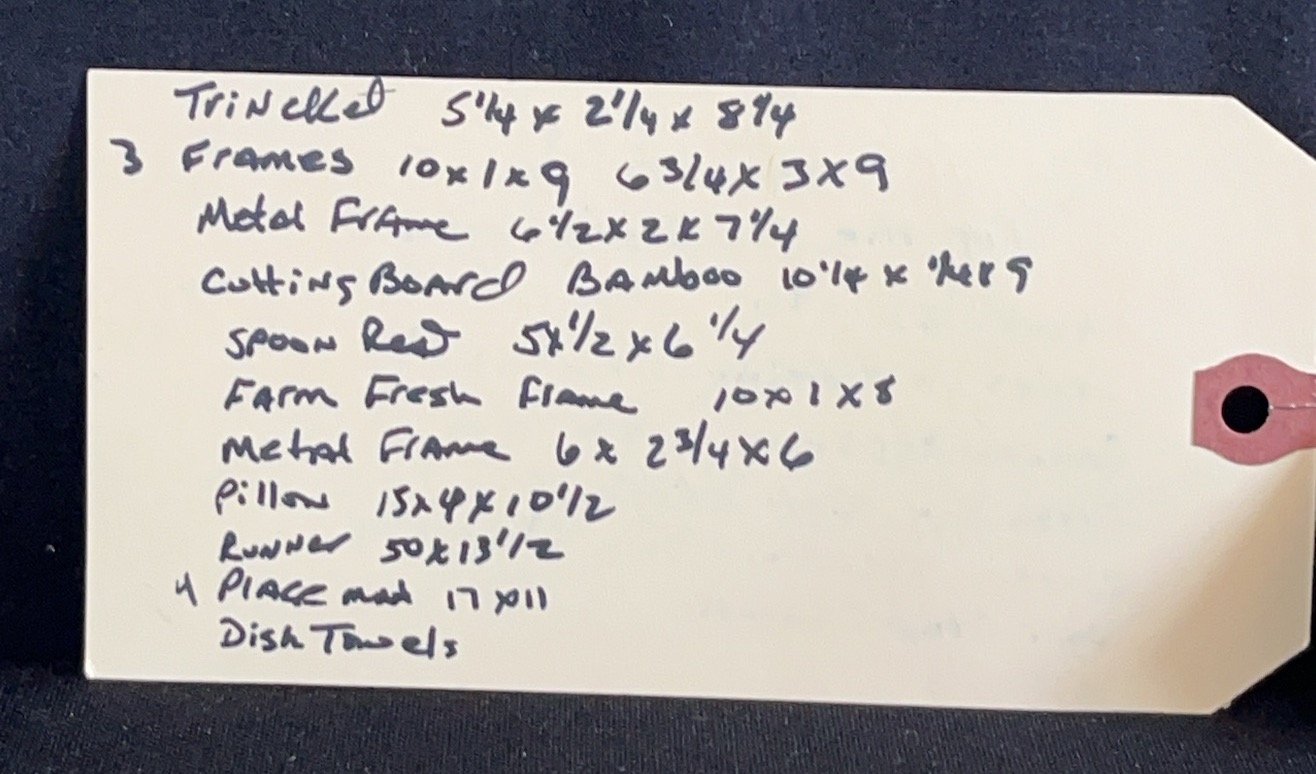 Trincket 5 1/4 x 2 1/4 x 8 1/4
3 Frames 10 x 1 x 9 6 3/4 x 3 x 9
Metal Frame 6 1/2 x 2 x 7 1/4
Cutting Board Bamboo 10 1/4 x x 9
Spoon Rest 5 x 1/2 x 6 1/4
Farm Fresh Frame 10 x 1 x 8
Metal Frame 6 x 2 3/4 x 6
Pillow 15 x 4 x 10 1/2
Runner 50 x 13 1/2
4 Place mat 17 x 11
Dish Towels